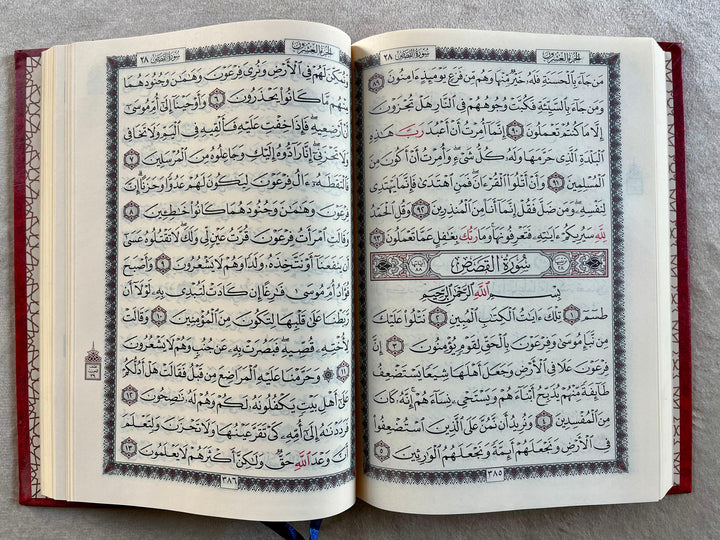 الجزء العشرون سورة القصص ٢٨
مَن جَآءَ بِٱلْحَسَنَةِ فَلَهُۥ خَيْرٌ مِّنْهَا وَهُم مِّن فَزَعٍ يَوْمَئِذٍ ءَامِنُونَ ٨٩
وَمَن جَآءَ بِٱلسَّيِّئَةِ فَكُبَّتْ وُجُوهُهُمْ فِي ٱلنَّارِ هَلْ تُجْزَوْنَ
إِلَّا مَا كُنتُمْ تَعْمَلُونَ ٩٠ إِنَّمَآ أُمِرْتُ أَنْ أَعْبُدَ رَبَّ هَٰذِهِ
ٱلْبَلْدَةِ ٱلَّذِي حَرَّمَهَا وَلَهُۥ كُلُّ شَيْءٍ وَأُمِرْتُ أَنْ أَكُونَ مِنَ
ٱلْمُسْلِمِينَ ٩١ وَأَنْ أَتْلُوَا۟ ٱلْقُرْءَانَ فَمَنِ ٱهْتَدَىٰ فَإِنَّمَا يَهْتَدِي
لِنَفْسِهِۦ وَمَن ضَلَّ فَقُلْ إِنَّمَآ أَنَا۠ مِنَ ٱلْمُنذِرِينَ ٩٢ وَقُلِ ٱلْحَمْدُ
لِلَّهِ سَيُرِيكُمْ ءَايَٰتِهِۦ فَتَعْرِفُونَهَا وَمَا رَبُّكَ بِغَٰفِلٍ عَمَّا تَعْمَلُونَ ٩٣
سُورَةُ القَصَصِ
بِسْمِ ٱللَّهِ ٱلرَّحْمَٰنِ ٱلرَّحِيمِ
طسٓمٓ ١ تِلْكَ ءَايَٰتُ ٱلْكِتَٰبِ ٱلْمُبِينِ ٢ نَتْلُوا۟ عَلَيْكَ
مِن نَّبَإِ مُوسَىٰ وَفِرْعَوْنَ بِٱلْحَقِّ لِقَوْمٍ يُؤْمِنُونَ ٣ إِنَّ
فِرْعَوْنَ عَلَا فِي ٱلْأَرْضِ وَجَعَلَ أَهْلَهَا شِيَعًا يَسْتَضْعِفُ
طَآئِفَةً مِّنْهُمْ يُذَبِّحُ أَبْنَآءَهُمْ وَيَسْتَحْيِۦ نِسَآءَهُمْ إِنَّهُۥ كَانَ
مِنَ ٱلْمُفْسِدِينَ ٤ وَنُرِيدُ أَن نَّمُنَّ عَلَى ٱلَّذِينَ ٱسْتُضْعِفُوا۟
فِي ٱلْأَرْضِ وَنَجْعَلَهُمْ أَئِمَّةً وَنَجْعَلَهُمُ ٱلْوَٰرِثِينَ ٥
٣٨٥
الجزء العشرون سورة القصص ٢٨
وَنُمَكِّنَ لَهُمْ فِي ٱلْأَرْضِ وَنُرِيَ فِرْعَوْنَ وَهَٰمَٰنَ وَجُنُودَهُمَا
مِنْهُم مَّا كَانُوا۟ يَحْذَرُونَ ٦ وَأَوْحَيْنَآ إِلَىٰٓ أُمِّ مُوسَىٰٓ
أَنْ أَرْضِعِيهِ فَإِذَا خِفْتِ عَلَيْهِ فَأَلْقِيهِ فِي ٱلْيَمِّ وَلَا تَخَافِي
وَلَا تَحْزَنِيٓ إِنَّا رَآدُّوهُ إِلَيْكِ وَجَاعِلُوهُ مِنَ ٱلْمُرْسَلِينَ ٧
فَٱلْتَقَطَهُۥٓ ءَالُ فِرْعَوْنَ لِيَكُونَ لَهُمْ عَدُوًّا وَحَزَنًا إِنَّ
فِرْعَوْنَ وَهَٰمَٰنَ وَجُنُودَهُمَا كَانُوا۟ خَٰطِـِٔينَ ٨
وَقَالَتِ ٱمْرَأَتُ فِرْعَوْنَ قُرَّتُ عَيْنٍ لِّي وَلَكَ لَا تَقْتُلُوهُ عَسَىٰٓ
أَن يَنفَعَنَآ أَوْ نَتَّخِذَهُۥ وَلَدًا وَهُمْ لَا يَشْعُرُونَ ٩ وَأَصْبَحَ
فُؤَادُ أُمِّ مُوسَىٰ فَٰرِغًا إِن كَادَتْ لَتُبْدِي بِهِۦ لَوْلَآ أَن
رَّبَطْنَا عَلَىٰ قَلْبِهَا لِتَكُونَ مِنَ ٱلْمُؤْمِنِينَ ١٠ وَقَالَتْ
لِأُخْتِهِۦ قُصِّيهِ فَبَصُرَتْ بِهِۦ عَن جُنُبٍ وَهُمْ لَا يَشْعُرُونَ
١١ ۞ وَحَرَّمْنَا عَلَيْهِ ٱلْمَرَاضِعَ مِن قَبْلُ فَقَالَتْ هَلْ أَدُلُّكُمْ
عَلَىٰٓ أَهْلِ بَيْتٍ يَكْفُلُونَهُۥ لَكُمْ وَهُمْ لَهُۥ نَٰصِحُونَ ١٢
فَرَدَدْنَٰهُ إِلَىٰٓ أُمِّهِۦ كَيْ تَقَرَّ عَيْنُهَا وَلَا تَحْزَنَ وَلِتَعْلَمَ
أَنَّ وَعْدَ ٱللَّهِ حَقٌّ وَلَٰكِنَّ أَكْثَرَهُمْ لَا يَعْلَمُونَ ١٣
٣٨٦